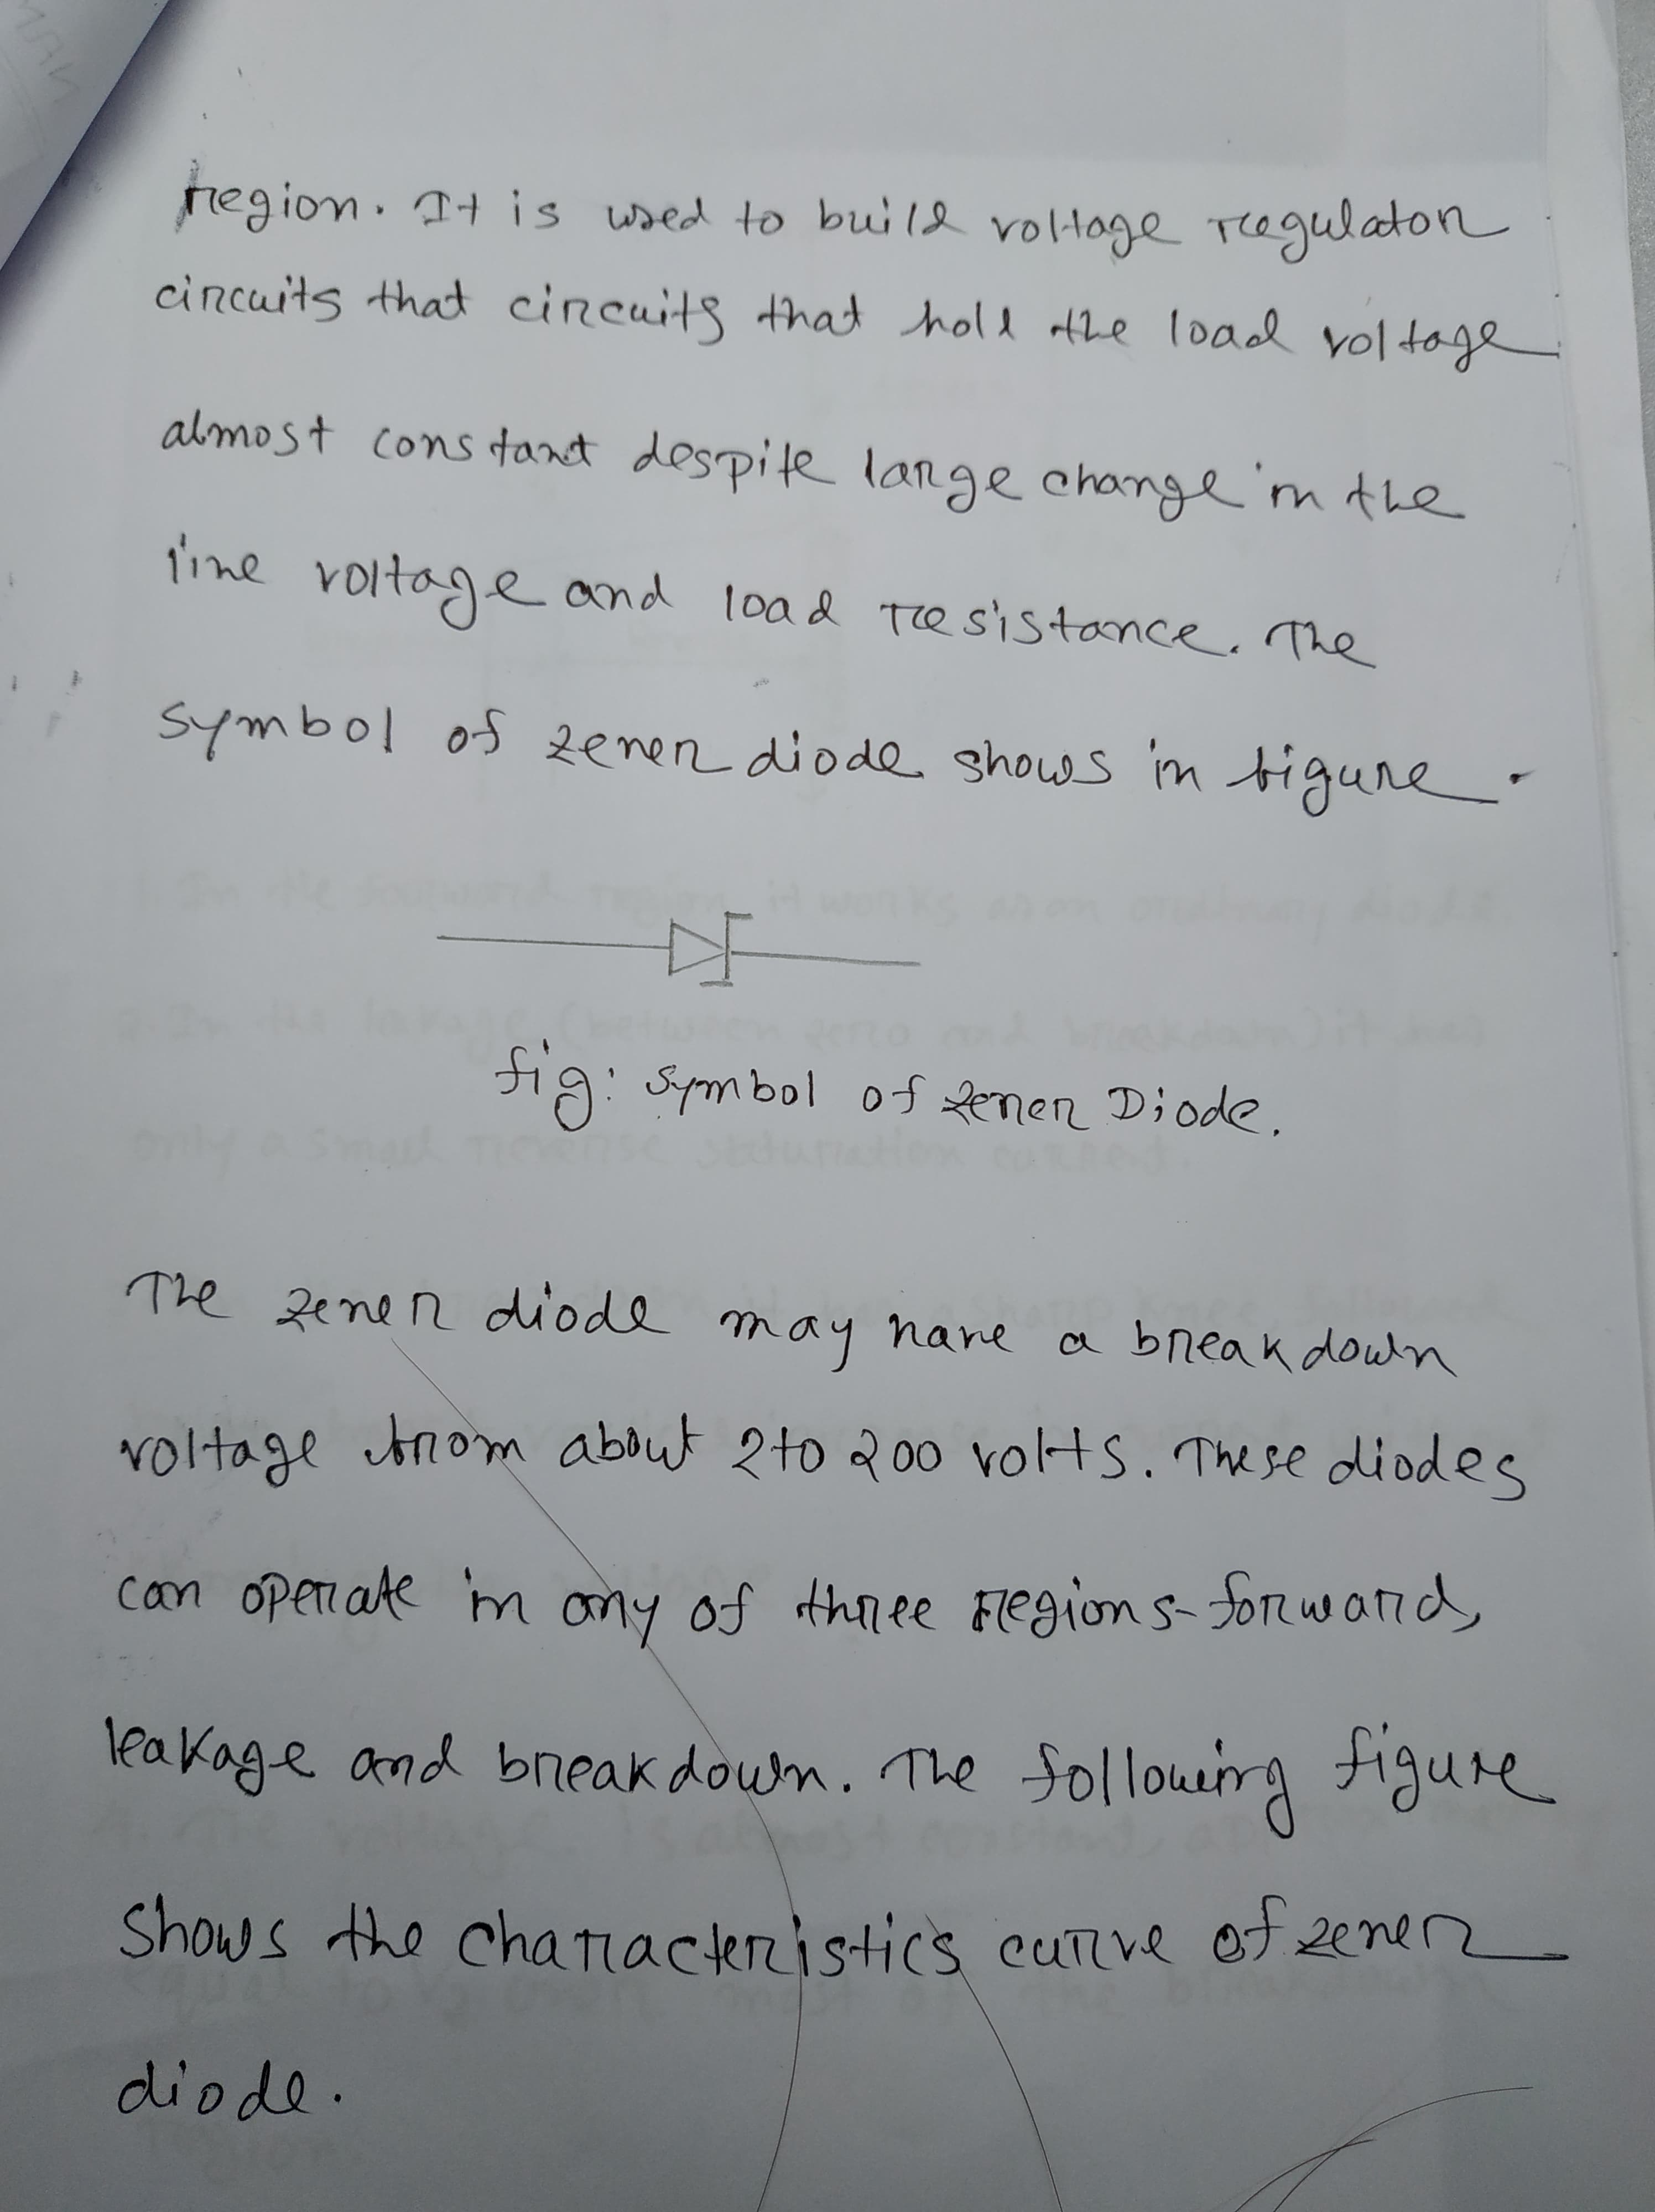 region. It is used to build voltage regulator
circuits that circuits that hold the load voltage
almost constant despite large change in the
line voltage and load resistance. The
symbol of zener diode shows in figure.
fig: symbol of zener Diode.
The zener diode may have a breakdown
voltage from about 2 to 200 volts. These diodes
can operate in any of three regions-forward,
leakage and breakdown. The following figure
shows the characteristics curve of zener
diode.